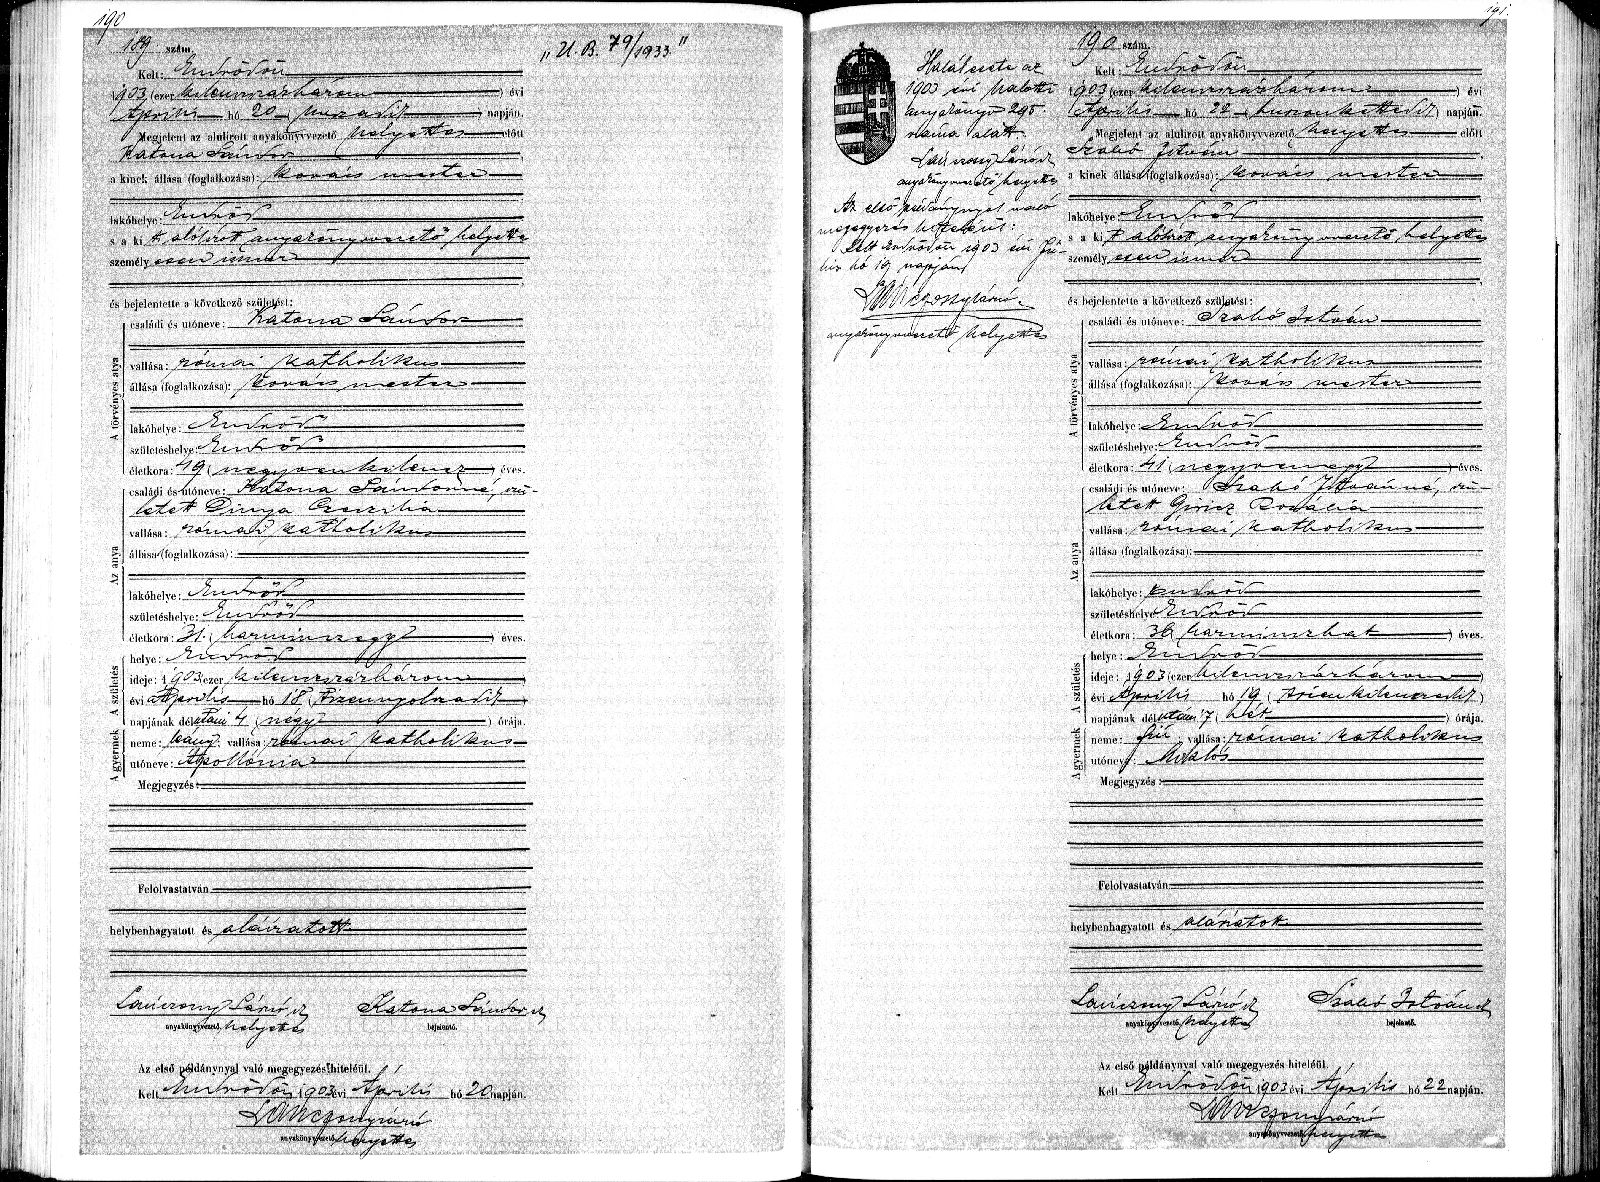 190
189 szám.
„U. B. 79/1933"
Kelt: Endrődön
1903 (ezer kilenczszázhárom) évi
Április hó 20 (huszadik) napján.
Megjelent az alulirott anyakönyvvezető helyettes előtt
Katona Sándor
a kinek állása (foglalkozása): kovács mester
lakóhelye: Endrőd
s a ki t alólirott anyakönyvvezető helyettes
személy esen ismer
és bejelentette a következő születést:
A törvényes atya
családi és utóneve: Katona Sándor
vallása: római katholikus
állása (foglalkozása): kovács mester
lakóhelye: Endrőd
születéshelye: Endrőd
életkora: 49 (negyvenkilencz) éves.
Az anya
családi és utóneve: Katona Sándorné, szü-
letett Dinya Czeczilia
vallása: római katholikus
állása (foglalkozása):
lakóhelye: Endrőd
születéshelye: Endrőd
életkora: 31. (harminczegy) éves.
A gyermek A születés
helye: Endrőd
ideje: 1903 (ezer kilenczszázhárom)
évi Április hó 18 (tizennyolczadik)
napjának délutáni 4 (négy) órája.
neme: leány; vallása: római katholikus
utóneve: Apollónia
Megjegyzés:
Felolvastatván
helybenhagyatott és aláiratott
Lánczony Lásló sk Katona Sándor sk
anyakönyvvezető helyettes bejelentő.
Az első példánynyal való megegyezés hiteléül.
Kelt Endrődön 1903 évi Április hó 20 napján.
anyakönyvvezető helyettes
191.
Halálesete az
1903 évi halotti
anyakönyv 295
szám alatt.
anyakönyvvezető helyettes
Az első példánynyal való
megegyezés hiteléül:
Kelt Endrődön 1903 évi Ju-
lius hó 19 napján
anyakönyvvezető helyettes
190 szám.
Kelt: Endrődön
1903 (ezer kilenczszázhárom) évi
Április hó 22 (huszonkettedik) napján.
Megjelent az alulirott anyakönyvvezető helyettes előtt
Szabó István
a kinek állása (foglalkozása): kovács mester
lakóhelye: Endrőd
s a ki t alólirott anyakönyvvezető helyettes
személy esen ismer
és bejelentette a következő születést:
A törvényes atya
családi és utóneve: Szabó István
vallása: római katholikus
állása (foglalkozása): kovács mester
lakóhelye: Endrőd
születéshelye: Endrőd
életkora: 41 (negyvenegy) éves.
Az anya
családi és utóneve: Szabó Istvánné, szü-
letett Giricz Rozália
vallása: római katholikus
állása (foglalkozása):
lakóhelye: Endrőd
születéshelye: Endrőd
életkora: 36 (harminczhat) éves.
A gyermek A születés
helye: Endrőd
ideje: 1903 (ezer kilenczszázhárom)
évi Április hó 19 (tizenkilenczedik)
napjának délutáni 7 (hét) órája.
neme: fiú; vallása: római katholikus
utóneve: Miklós
Megjegyzés:
Felolvastatván
helybenhagyatott és aláiratott
Lánczony Lásló sk Szabó István sk
anyakönyvvezető helyettes bejelentő.
Az első példánynyal való megegyezés hiteléül.
Kelt Endrődön 1903 évi Április hó 22 napján.
anyakönyvvezető helyettes